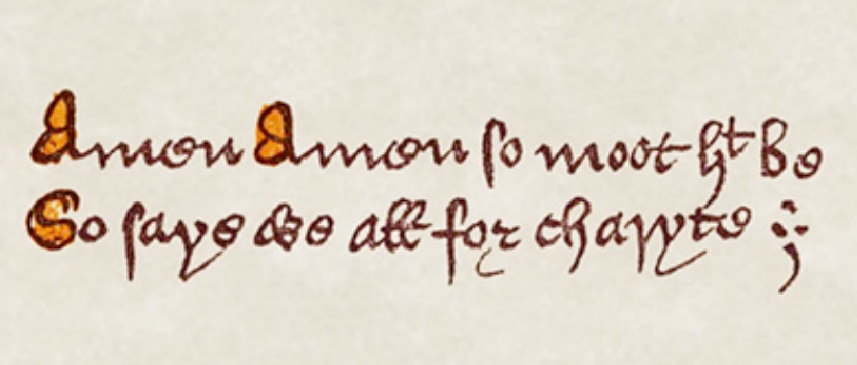 Amen Amen so moot hᵗ be
So saye we all for charyte